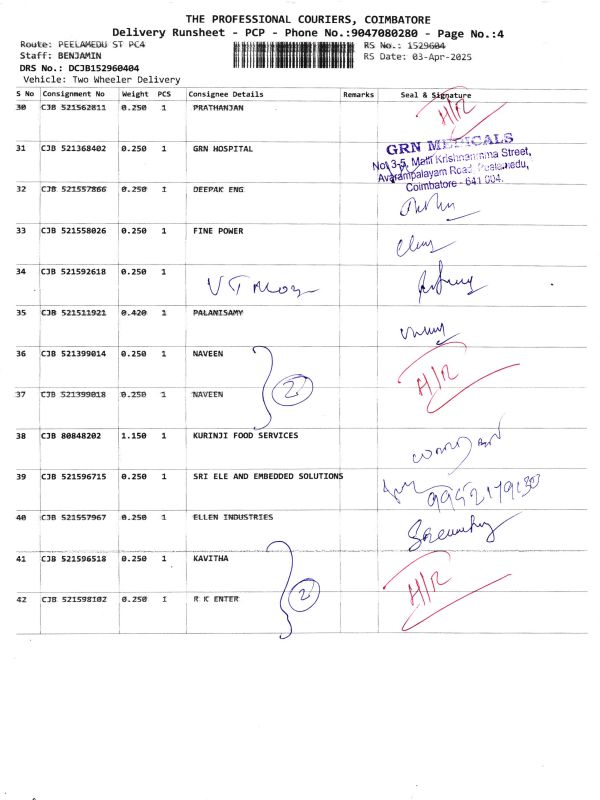 THE PROFESSIONAL COURIERS, COIMBATORE
Delivery Runsheet - PCP - Phone No.:9047080280 - Page No.:4
Route: PEELAMEDU ST PC4
RS No.: 1529604
Staff: BENJAMIN
RS Date: 03-Apr-2025
DRS No.: DCJB152960404
Vehicle: Two Wheeler Delivery
S No Consignment No Weight PCS Consignee Details Remarks Seal & Signature
30 CJB 521562811 0.250 1 PRATHANJAN H/R
31 CJB 521368402 0.250 1 GRN HOSPITAL
GRN MEDICALS
No. 3-5, Mani Krishnamma Street,
Avarampalayam Road, Peelamedu,
Coimbatore - 641 004.
32 CJB 521557866 0.250 1 DEEPAK ENG
33 CJB 521558026 0.250 1 FINE POWER
34 CJB 521592618 0.250 1
35 CJB 521511921 0.420 1 PALANISAMY
36 CJB 521399014 0.250 1 NAVEEN
2 H/R
37 CJB 521399018 0.250 1 NAVEEN
38 CJB 80848202 1.150 1 KURINJI FOOD SERVICES
39 CJB 521596715 0.250 1 SRI ELE AND EMBEDDED SOLUTIONS
40 CJB 521557967 0.250 1 ELLEN INDUSTRIES
41 CJB 521596518 0.250 1 KAVITHA
2 H/R
42 CJB 521598102 0.250 1 R K ENTER